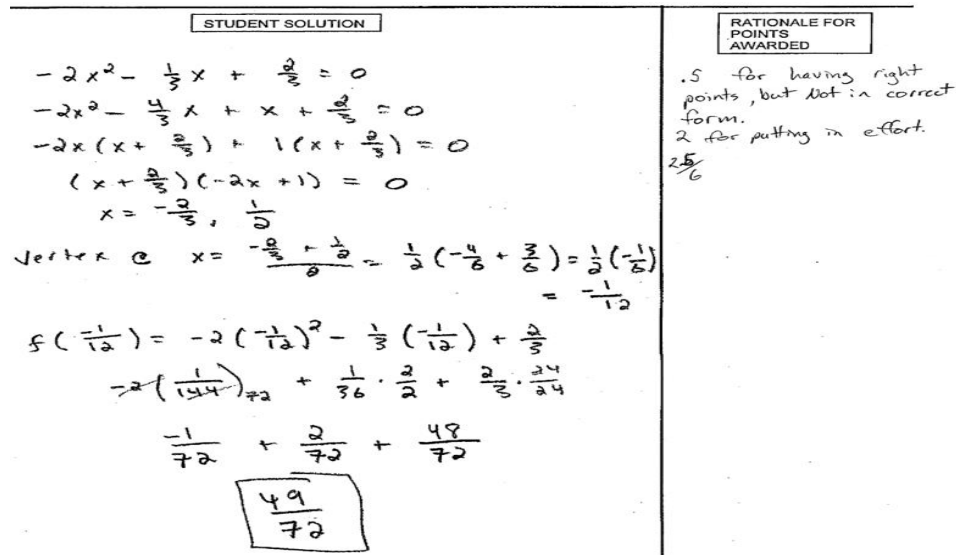 STUDENT SOLUTION
-2x² - 1/3 x + 2/3 = 0
-2x² - 4/3 x + x + 2/3 = 0
-2x(x + 2/3) + 1(x + 2/3) = 0
(x + 2/3)(-2x + 1) = 0
x = -2/3, 1/2
Vertex @ x = (-2/3 + 1/2)/2 = 1/2(-4/6 + 3/6) = 1/2(-1/6)
= -1/12
f(-1/12) = -2(-1/12)² - 1/3(-1/12) + 2/3
-2(1/144)72 + 1/36 · 2/2 + 2/3 · 24/24
-1/72 + 2/72 + 48/72
49/72
RATIONALE FOR
POINTS
AWARDED
.5 for having right
points, but Not in correct
form.
2 for putting in effort.
2.5/6